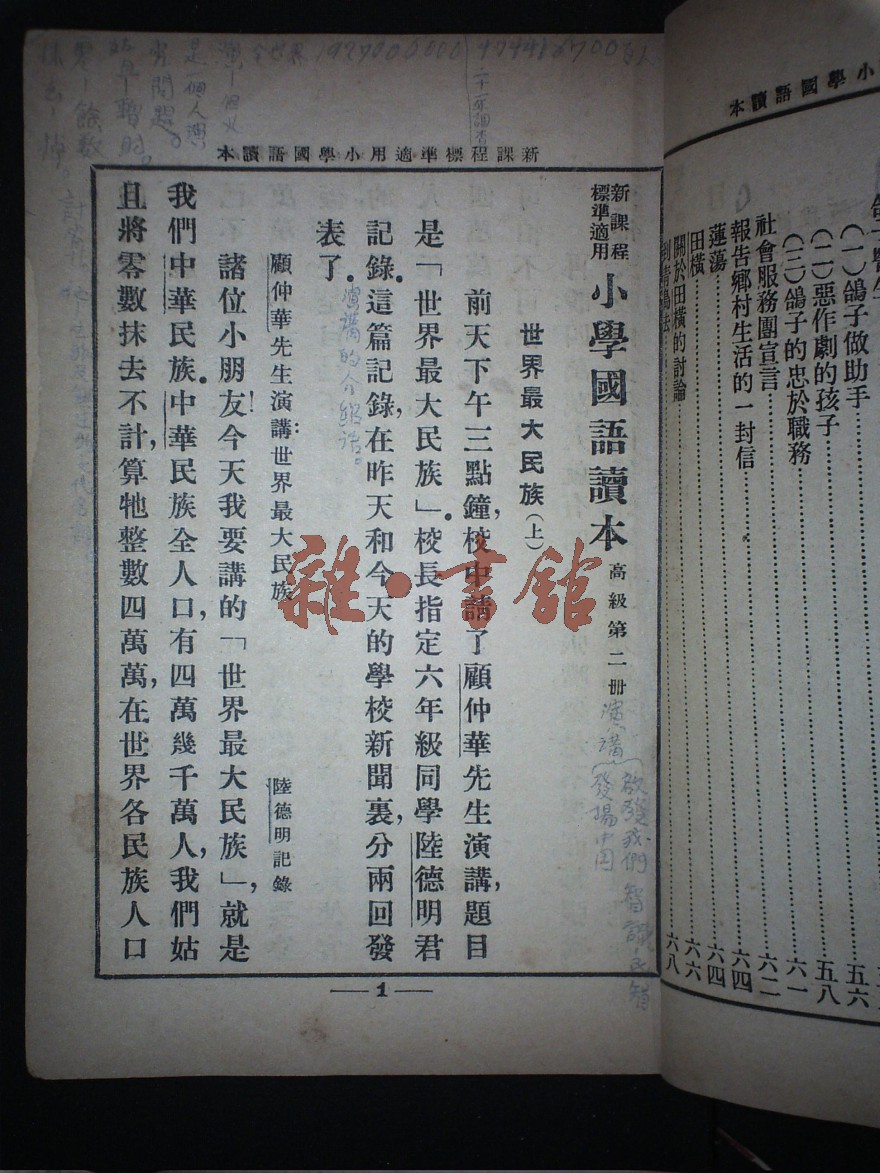 新課程標準適用小學國語讀本
新課程
標準適用
小學國語讀本 高級第二册
世界最大民族(上)
前天下午三點鐘,校中請了顧仲華先生演講,題目
是「世界最大民族」。校長指定六年級同學陸德明君
記錄。這篇記錄,在昨天和今天的學校新聞裏,分兩回發
表了。
顧仲華先生演講:世界最大民族 陸德明記錄
諸位小朋友!今天我要講的「世界最大民族」,就是
我們中華民族。中華民族全人口,有四萬幾千萬人,我們姑
且將零數抹去不計,算牠整數四萬萬,在世界各民族人口
1
演講的介紹話。
演講
啟發我們智識民智
發揚中国
今世界
是一個人
問題。
暫時。
零—餘數
抹去—掉。
小學國語讀本
(一)鴿子做助手 五六
(二)惡作劇的孩子 五八
(三)鴿子的忠於職務 六一
社會服務團宣言 六二
報告鄉村生活的一封信 六四
蓮蕩 六四
田橫 六六
關於田橫的討論 六八
雜·書館